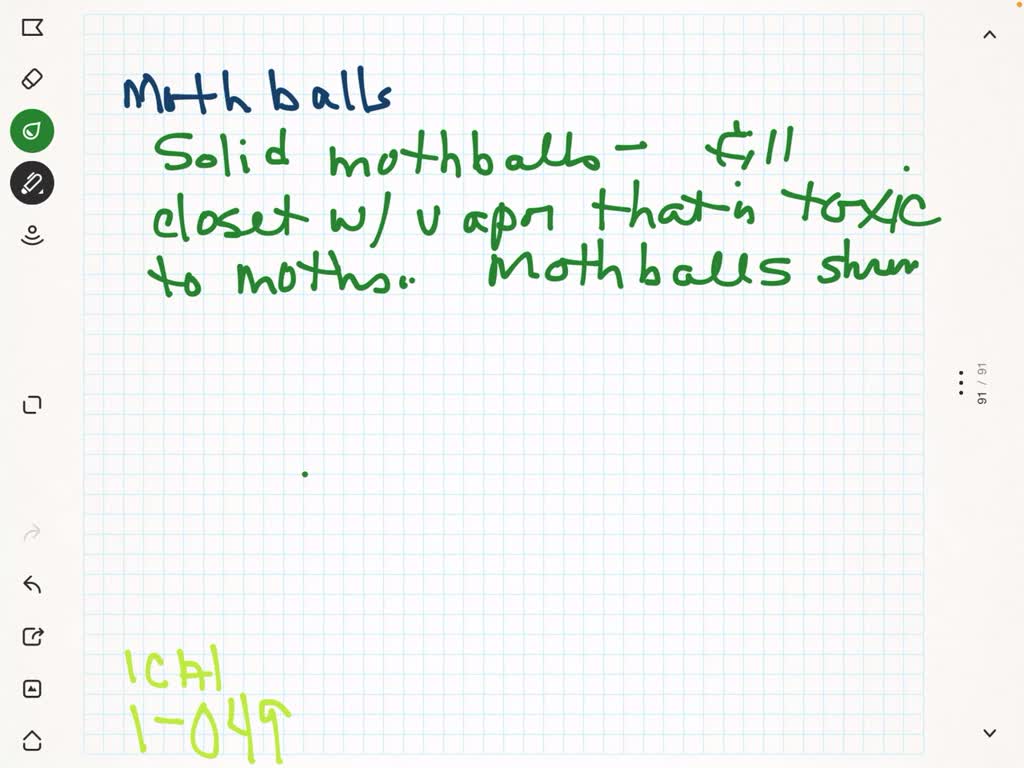 Moth balls
Solid mothballs - fill
closet w/ vapor that is toxic
to moths.. Moth balls
1CA1
1-049
91 / 91